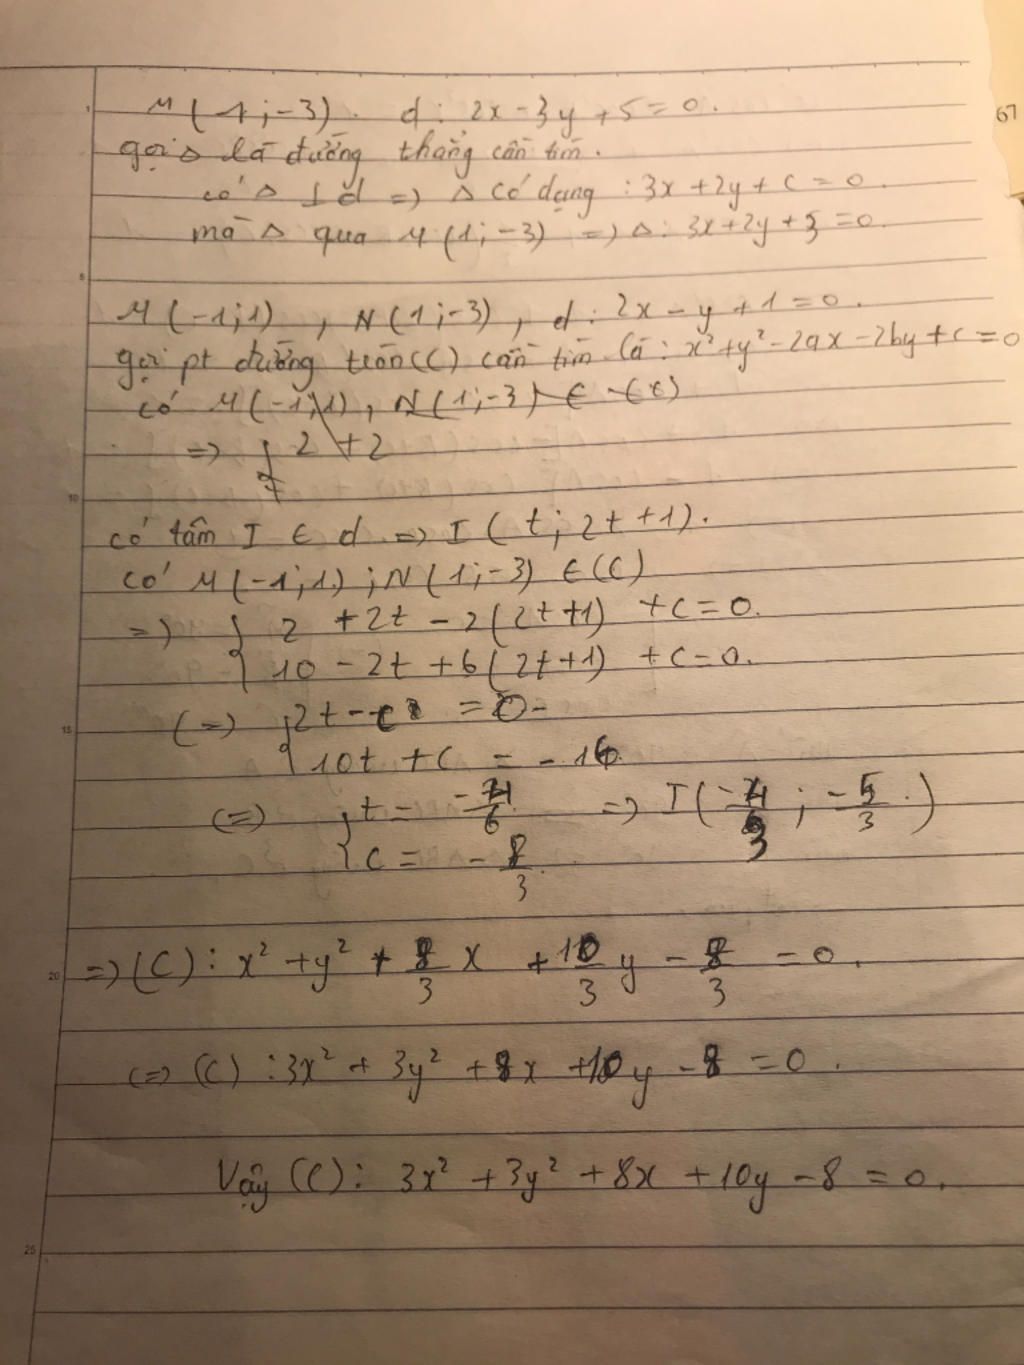 M(1;-3). d: 2x-3y+5=0.
67
1
gọi Δ là đường thẳng cần tìm.
có Δ ⊥ d => Δ có dạng : 3x+2y+c=0.
mà Δ qua M(1;-3) => Δ: 3x+2y+3=0.
5
M(-1;1), N(1;-3), d: 2x-y+1=0.
gọi pt đường tròn(C) cần tìm là: x²+y²-2ax-2by+c=0
có M(-1;1), N(1;-3) ∈ (C)
=> { 2 +2
10
có tâm I ∈ d => I(t; 2t+1).
có M(-1;1) ; N(1;-3) ∈ (C)
=> { 2 +2t -2(2t+1) +c=0.
10 -2t +6(2t+1) +c=0.
15
(=) { 2t-c = 0
10t +c = -16
(=) { t = -4/3 => I(-4/3 ; -5/3.)
c = -8/3.
20
=> (C): x² +y² + 8/3 x + 10/3 y - 8/3 = 0.
(=> (C) :3x² + 3y² +8x +10y -8 =0.
Vậy (C): 3x² +3y² +8x +10y -8 =0.
25